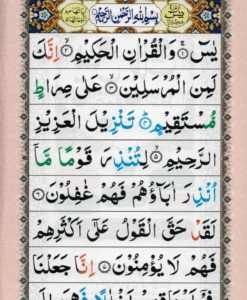 بِسْمِ اللهِ الرَّحْمٰنِ الرَّحِيْمِ
يٰسٓ ۚ﴿۱﴾ وَالْقُرْاٰنِ الْحَكِيْمِ ۙ﴿۲﴾ اِنَّكَ
لَمِنَ الْمُرْسَلِيْنَ ۙ﴿۳﴾ عَلٰى صِرَاطٍ
مُّسْتَقِيْمٍ ؕ﴿۴﴾ تَنْزِيْلَ الْعَزِيْزِ
الرَّحِيْمِ ۙ﴿۵﴾ لِتُنْذِرَ قَوْمًا مَّاۤ
اُنْذِرَ اٰبَآؤُهُمْ فَهُمْ غٰفِلُوْنَ ﴿۶﴾
لَقَدْ حَقَّ الْقَوْلُ عَلٰٓى اَكْثَرِهِمْ
فَهُمْ لَا يُؤْمِنُوْنَ ﴿۷﴾ اِنَّا جَعَلْنَا